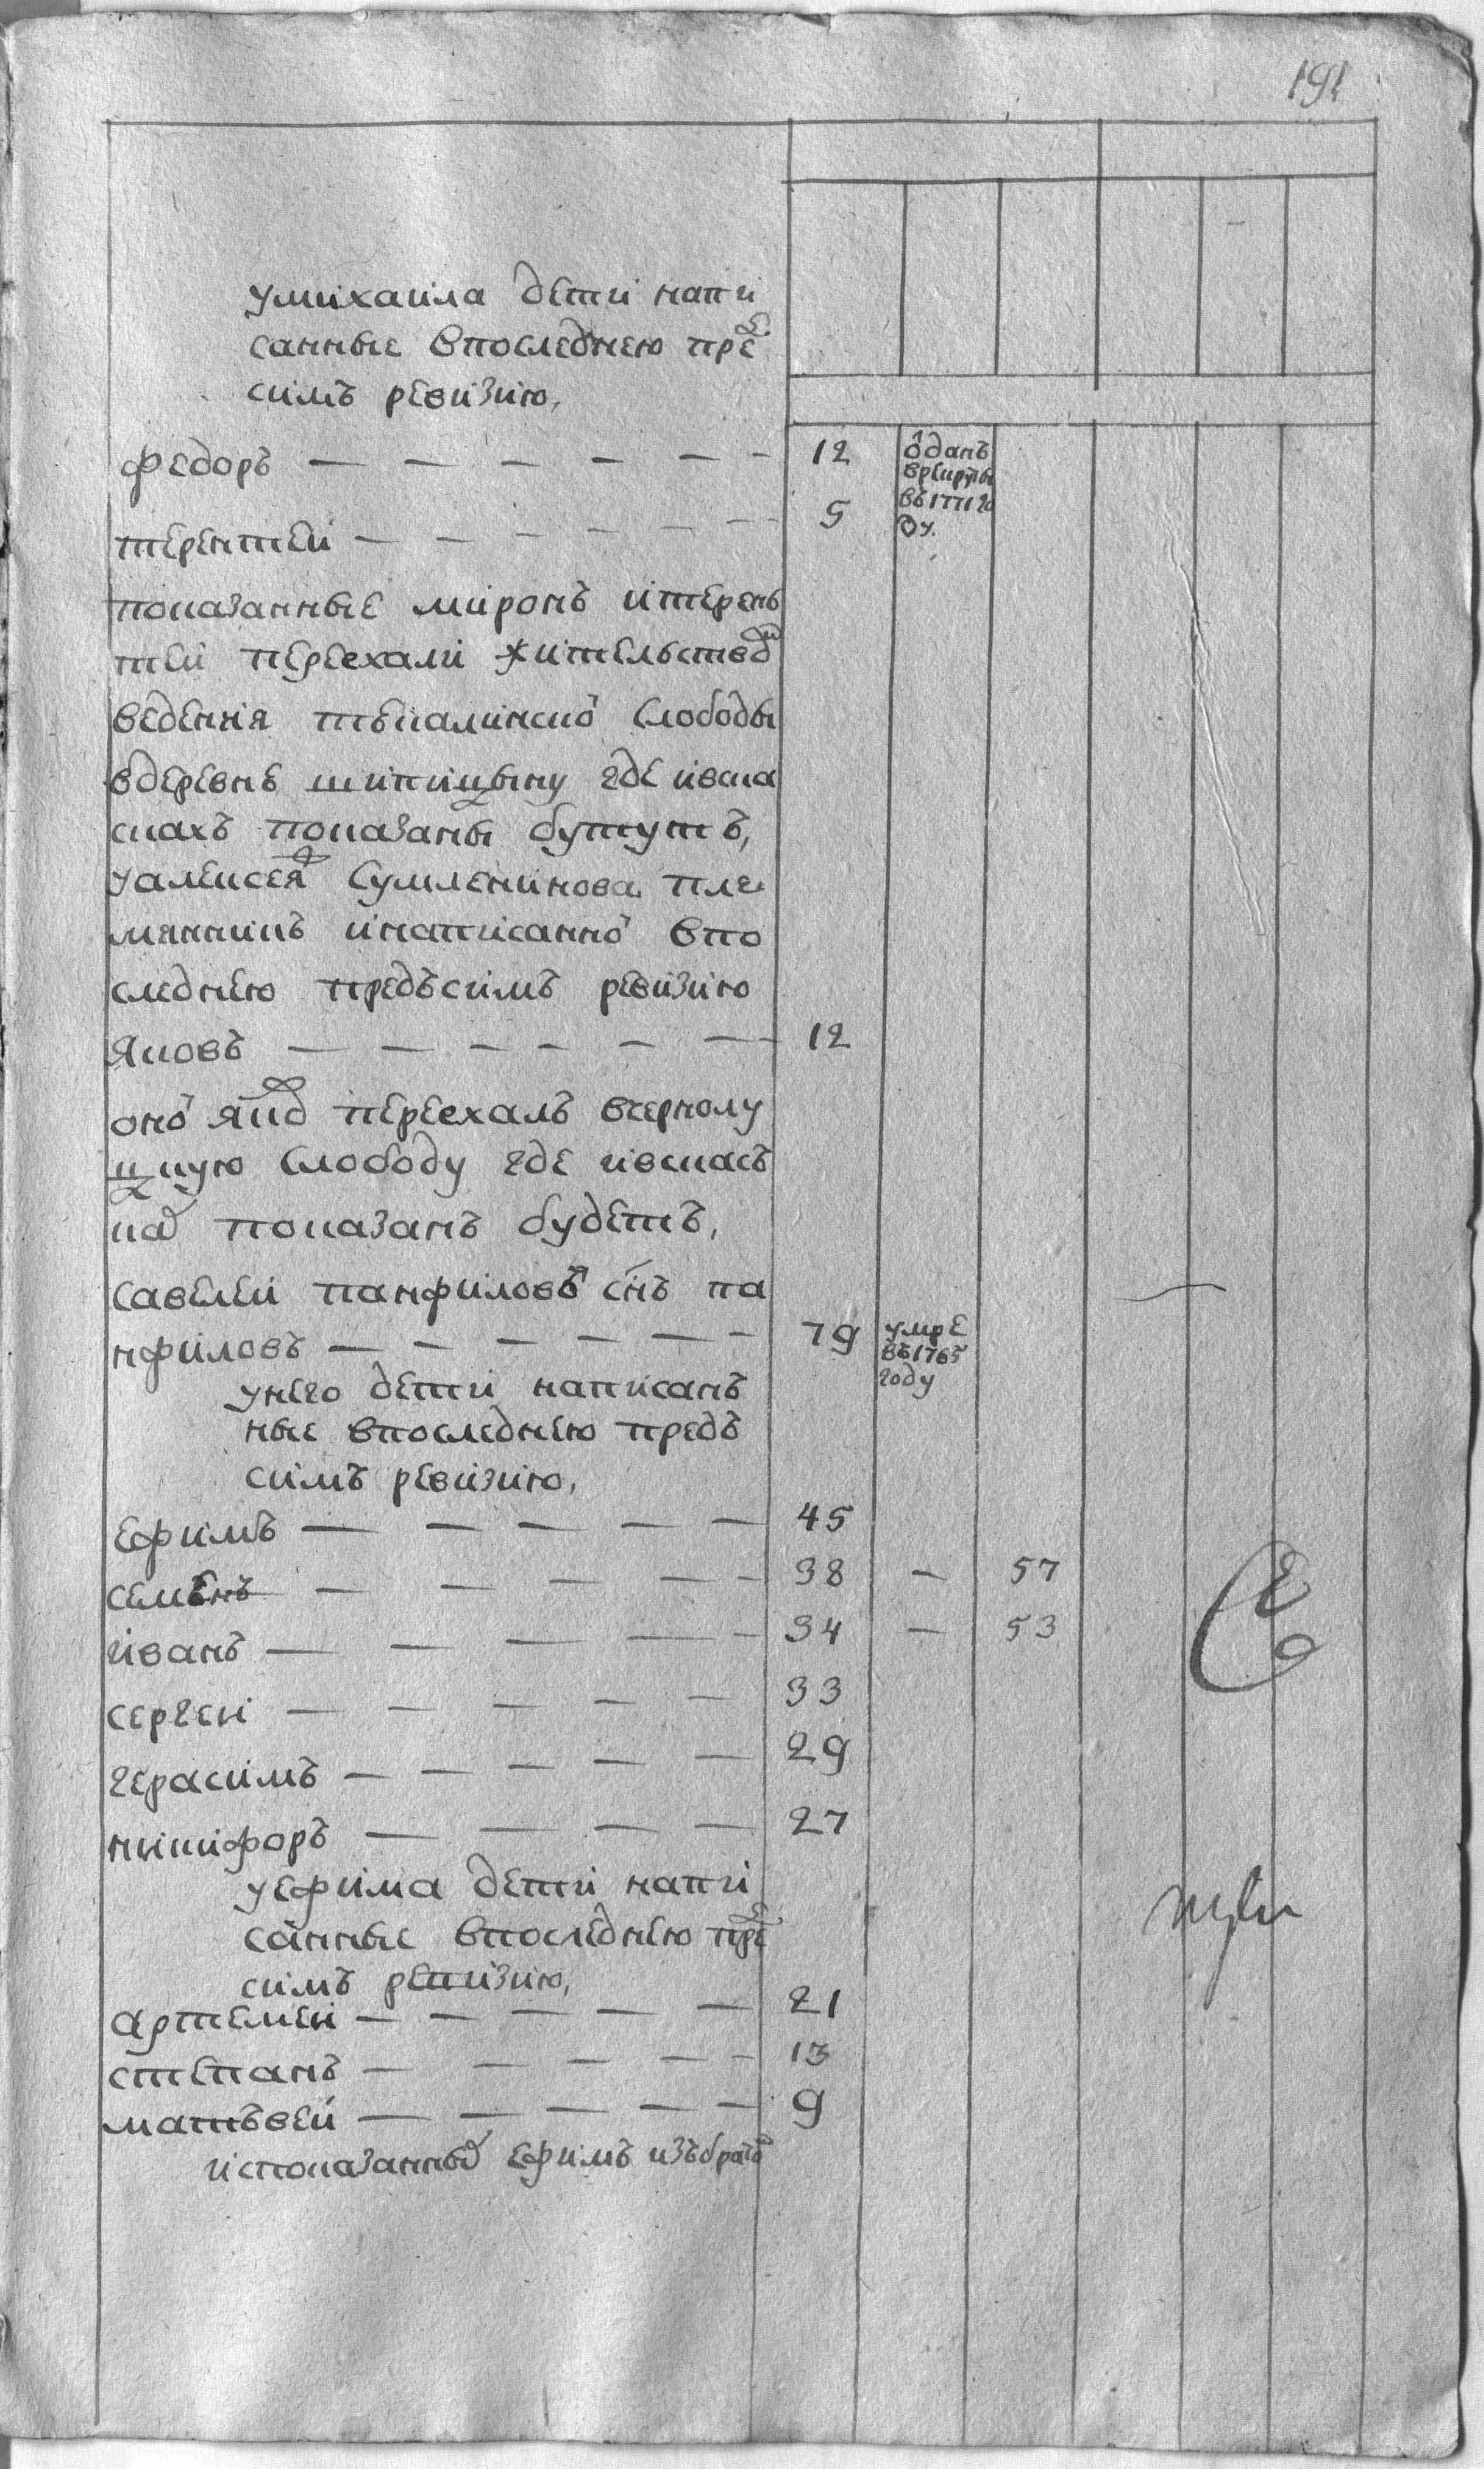 191
умихаила дети напи
санные впоследнею пре
симъ ревизию,
федоръ — — — — — — 12 оданъ
врекруты
въ1771го
ду.
терентей — — — — — — 5
показанные миронъ итерень
теи переехали жительствой
ведения тѣкалинско слободы
вдеревнѣ шипицыну где ивска
скахъ показаны бутутъ,
уалексея сумленинова пле
мянникъ инаписанно впо
следнею предъсимъ ревизию
яковъ — — — — — — 12
оно яко переехалъ вчернолу
цкую слободу где ивскасъ
ка показанъ будетъ,
савелеи панфиловъ снъ па
нфиловъ — — — — — — 79 умре
въ1765
году
унего дети написанъ
ные впоследнею предъ
симъ ревизию,
ефимъ — — — — — 45
семенъ — — — — — 38 — 57
иванъ — — — — — 34 — 53
сергеи — — — — — 33
герасимъ — — — — — 29
никифоръ — — — — 27
уефима дети напи
санные впоследнею пре
симъ ревизию,
артемеи — — — — — 21
степанъ — — — — — 13
матъвеи — — — — — 9
испоказанны ефимъ изъбрать